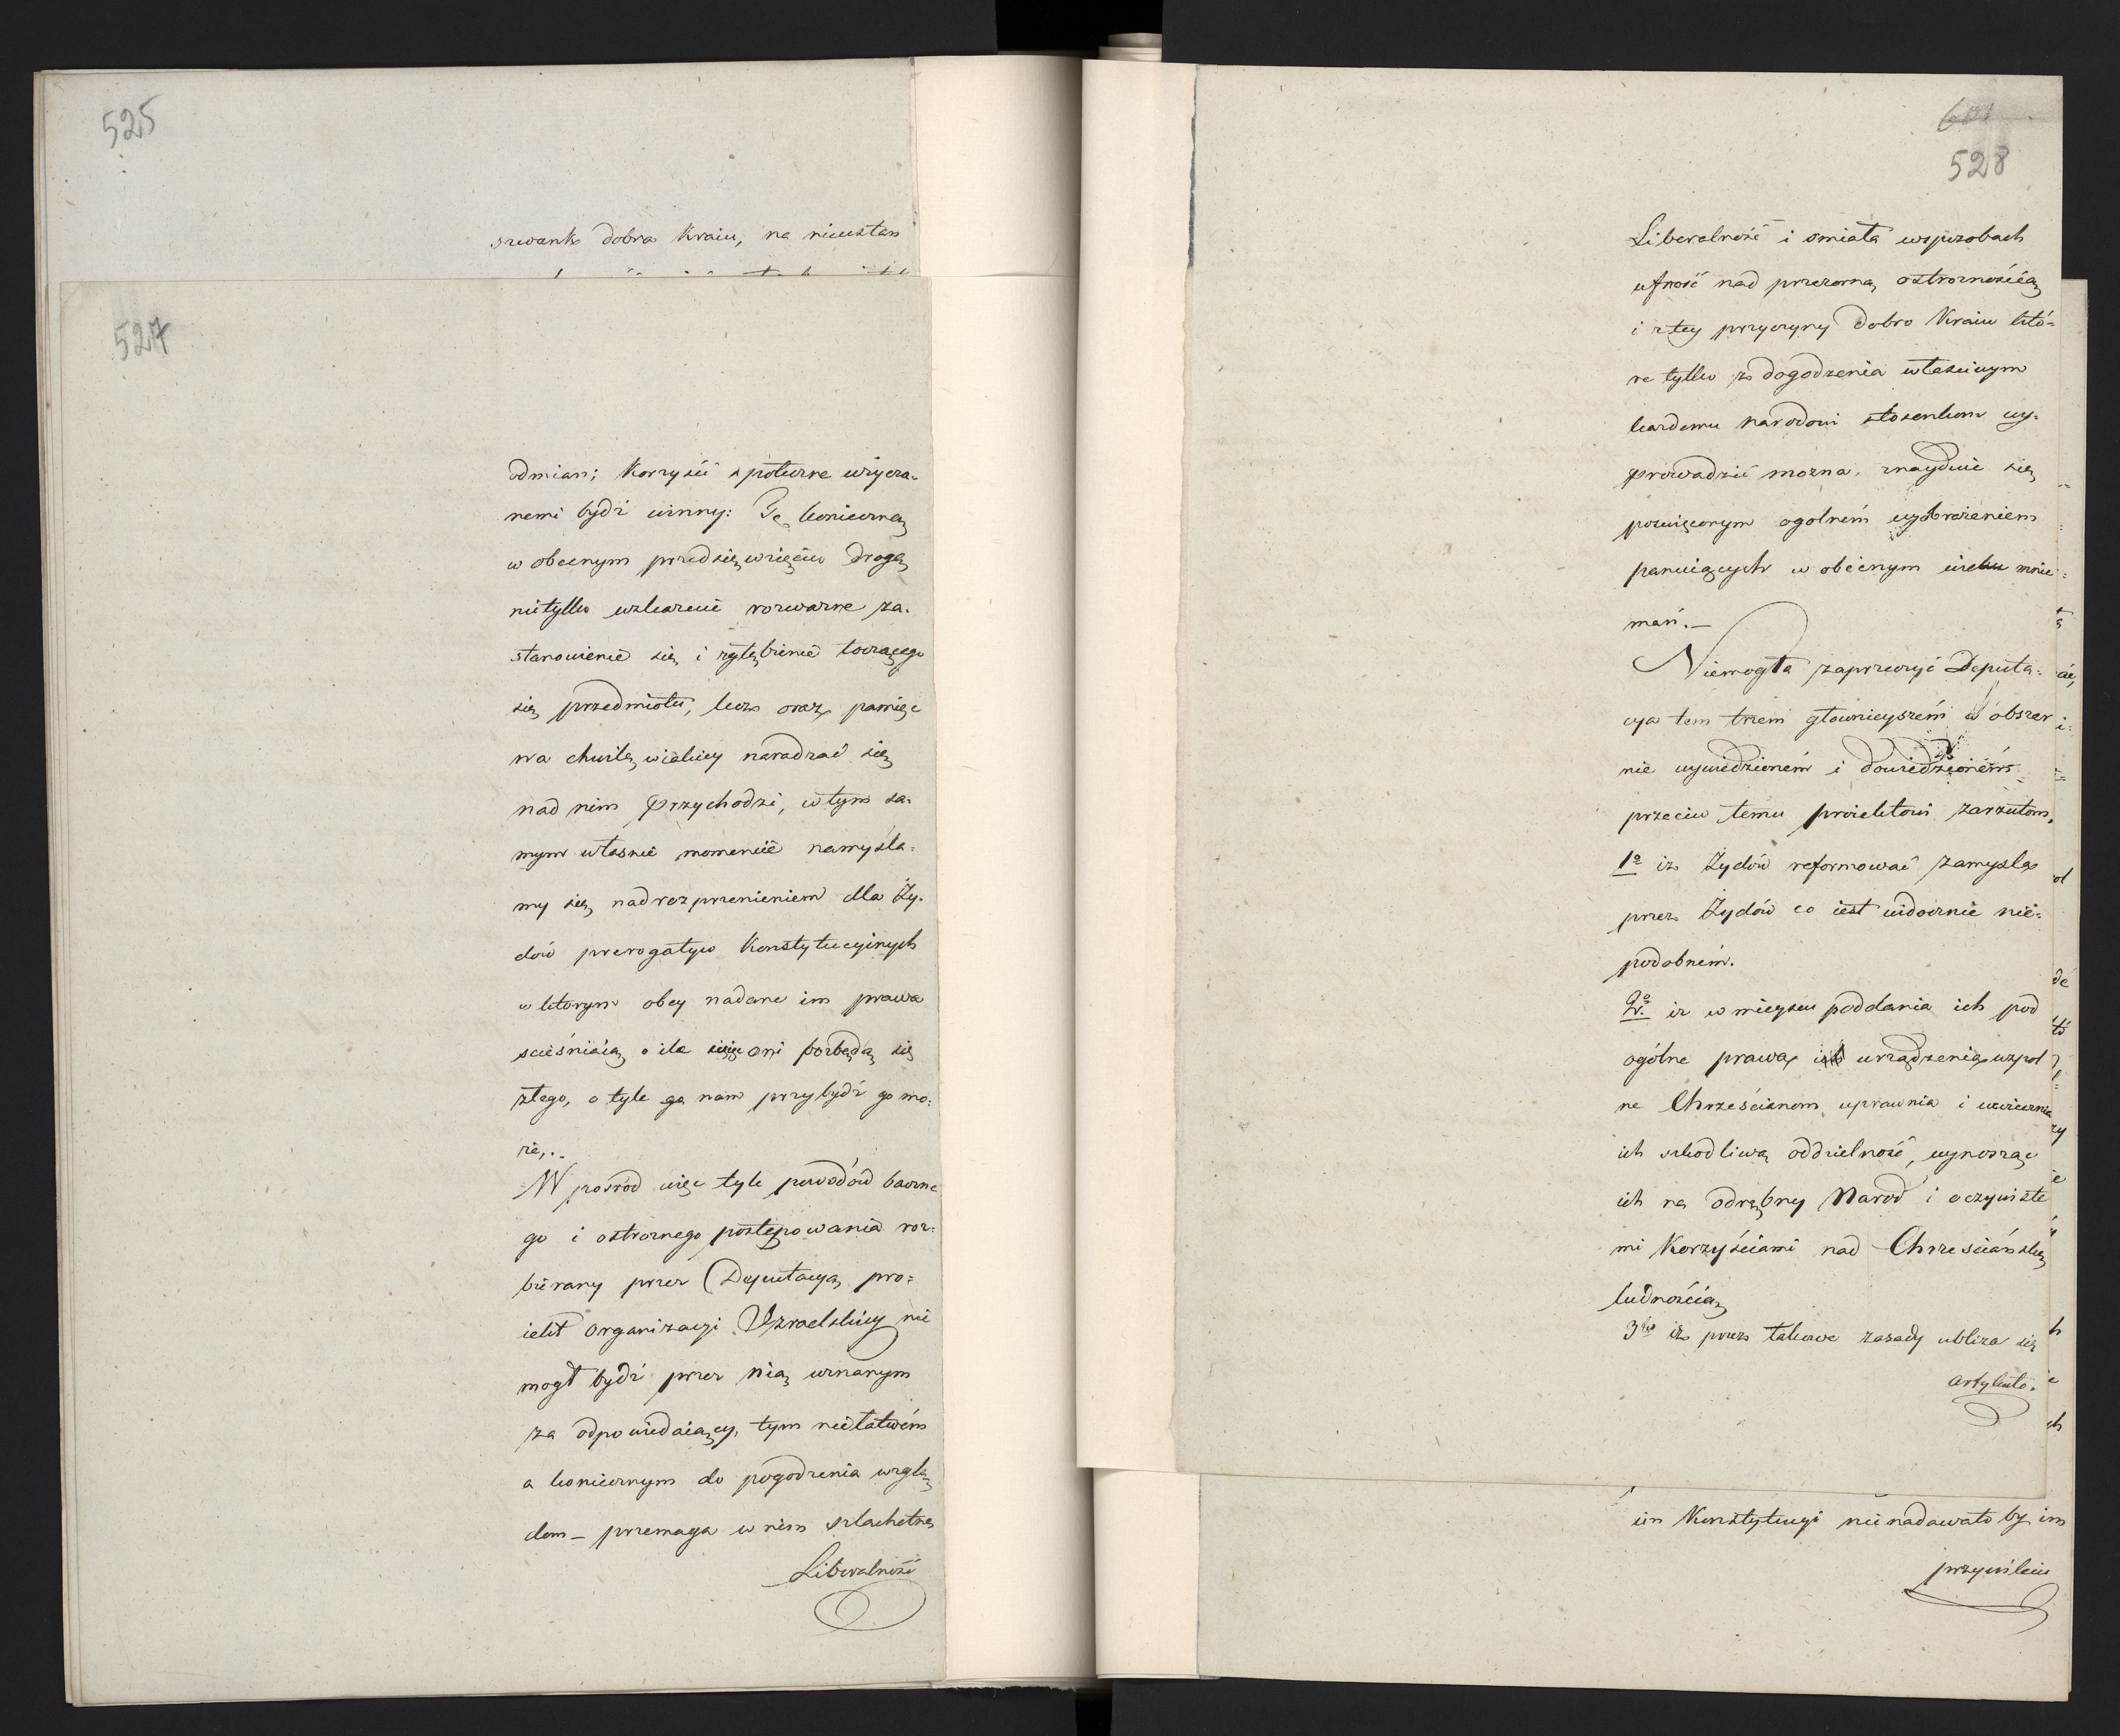 525
szwank dobra Kraiu, na nieustan
527
odmian; Korzyści spólne użycza-
nemi bydź winny: Tę konieczną
w obecnym przedsięwzięciu drogę
nietylko wskazuie rozważne za-
stanowienie się i zgłębienie toczącego
się przedmiotu, lecz oraz pamięć
na chwilę, w iakiey naradzać się
nad nim przychodzi, w tym sa-
mym własnie momencie namyśla-
my się nad rozprzenieniem dla Ży-
dów prerogatyw Konstytucyinych
w ktorym obcy nadane im prawa
scieśniaią, o ile ani pozbędą się
złego, o tyle nam przybydź go mo-
że,.-
W posród więc tyle powodów baczne
go i ostrożnego postępowania roz-
bierany przez Deputacyą pro-
iekt Organizacyi Izraelskiey nie
mogł bydź przez nią uznanym
za odpowiedaiący, tym niełatwém
a koniecznym do pogodzenia wzglę
dom – przemaga w nim szlachetna
Liberalność
528
Liberalność i smiała w sposobach
ufność nad przezorną ostrożnością
i z tey przyczyny dobro Kraiu któ-
re tylko z dogodzenia własciwym
kardemu narodowi stosunkom wy-
prowadzić mozna, znayduie się
poswięconym ogolném wyobrażeniem
panuiących w obecnym wieku mnie-
mań.–
Niemogła zaprzeczyć Deputa-
cya tem trzem głownieyszém obszer
nie wywiedzioném i dowiedzioném
przeciw temu proiektowi zarzutom,
1º iz Żydów reformować zamysla
przez Żydów co iest widocznie nie-
podobném.
2º iz w mieyscu poddania ich pod
ogólne prawa i urządzenia wspol
ne Chrześcianom uprawnia i uwiecznia
ich szkodliwą oddzielność, wynosząc
ich na odrębny Narod i oczywiste
mi Korzyściami nad Chrześciańską
ludnością
3tio iz przez takowe zasady ubliza się
artykuło-
im Konstytucyi nienadawało by im
przywileiu